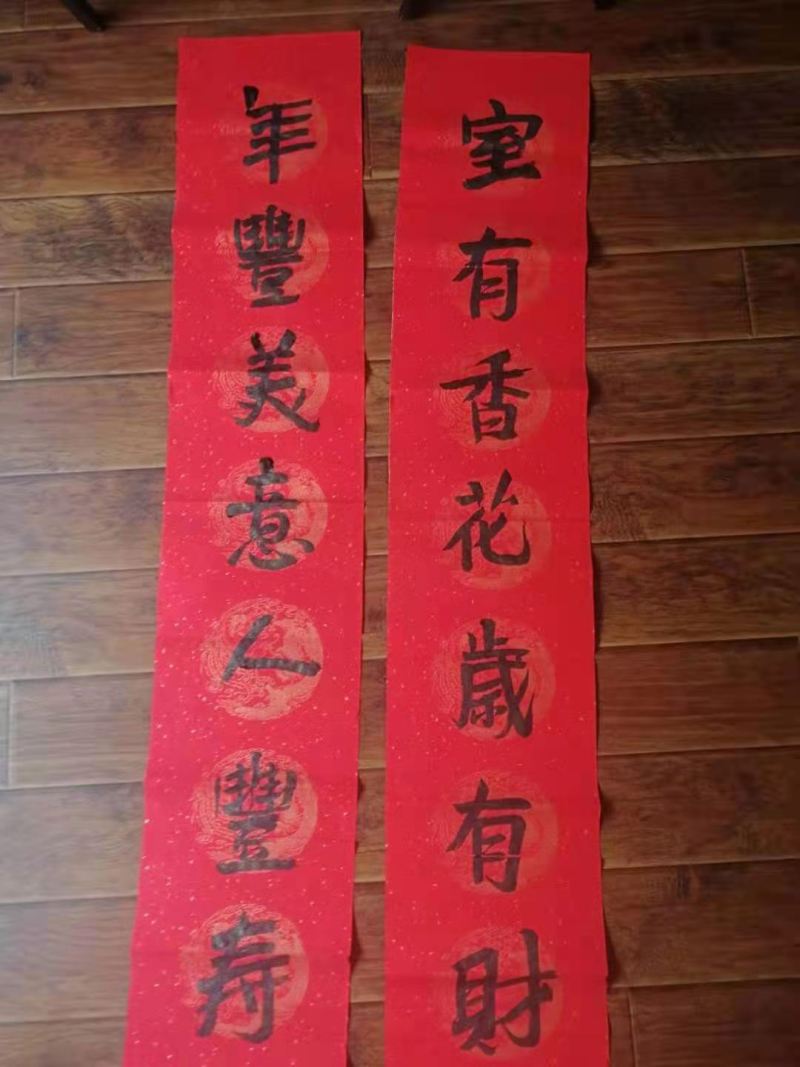 室有香花歲有財
年豐美意人豐寿